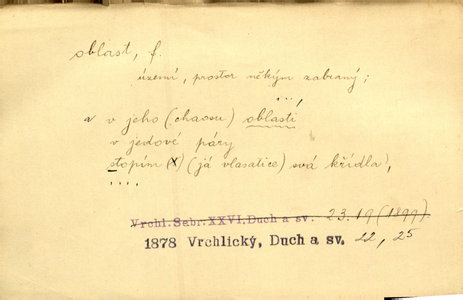 oblast, f.
území, prostor někým zabraný;
...,
a v jeho (chaosu) oblasti
v jedové páry
stopím (x) (já vlasatice) svá křídla,
....
Vrchl. Sabr. XXVI, Duch a sv. 23.19 (1899)
1878 Vrchlický, Duch a sv. 22, 25